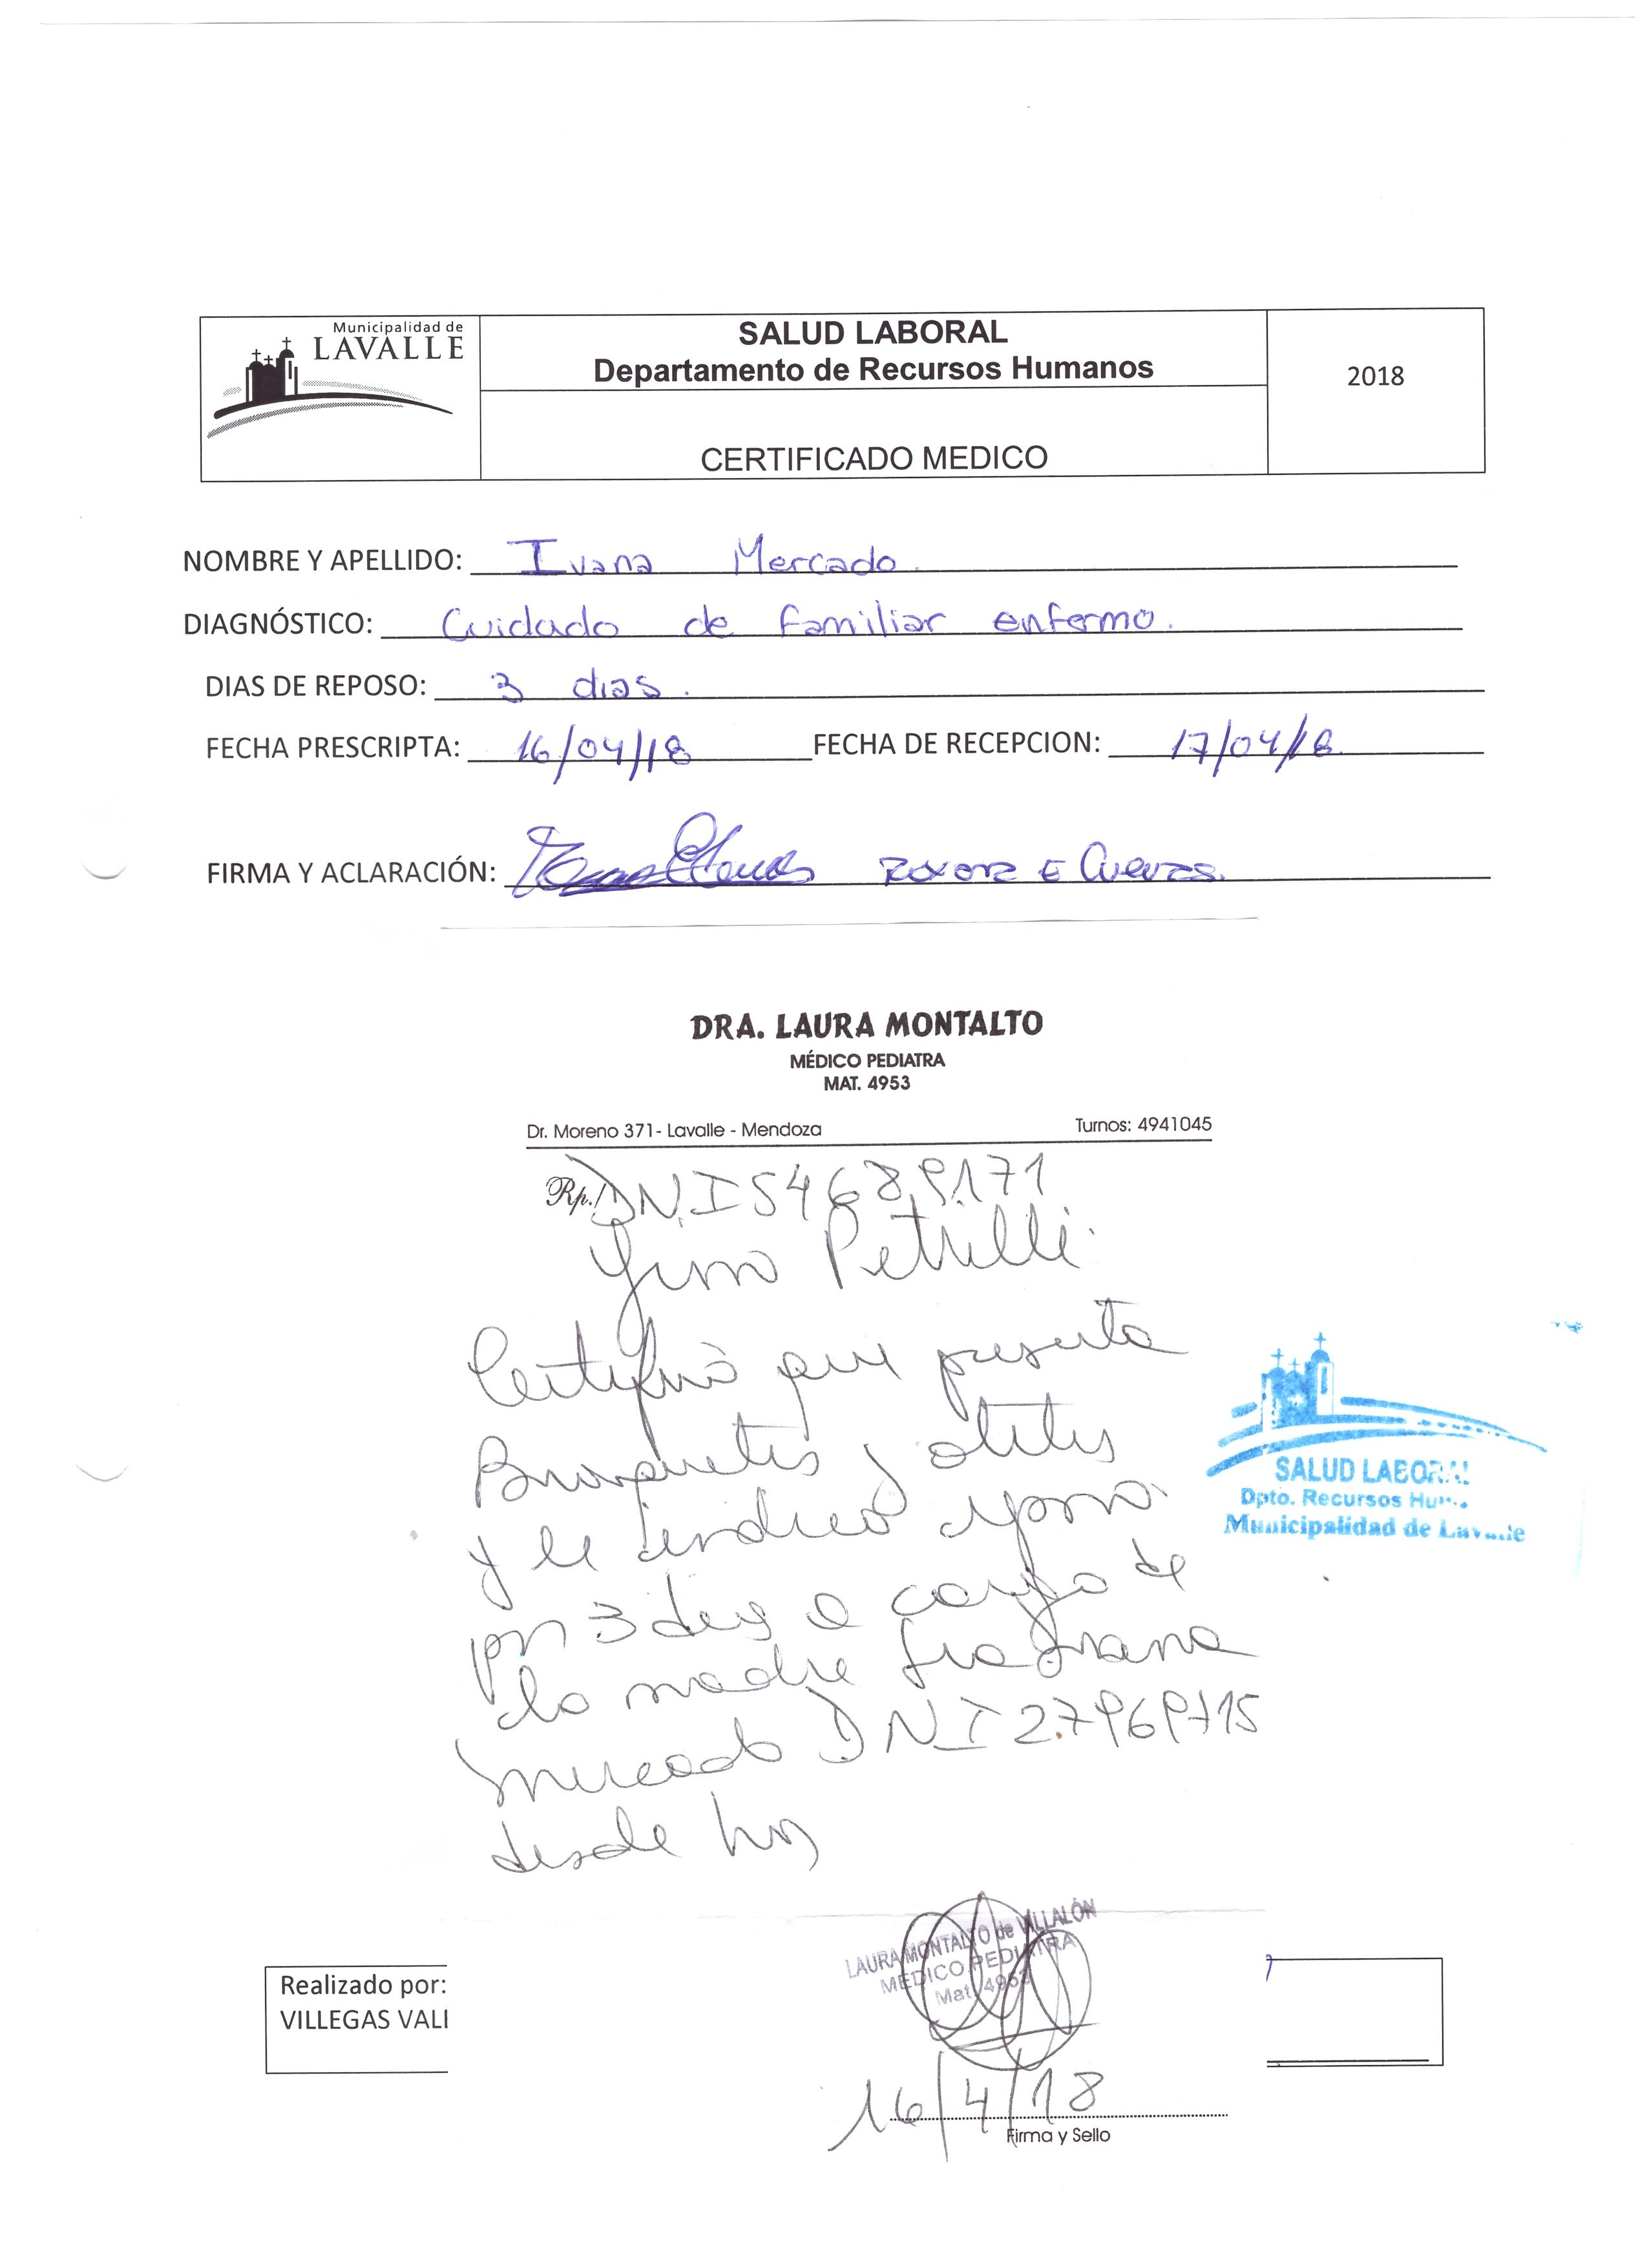 Municipalidad de
LAVALLE
SALUD LABORAL
Departamento de Recursos Humanos
2018
CERTIFICADO MEDICO
NOMBRE Y APELLIDO: Ivana Mercado.
DIAGNÓSTICO: Cuidado de familiar enfermo.
DIAS DE REPOSO: 3 dias.
FECHA PRESCRIPTA: 16/04/18 FECHA DE RECEPCION: 17/04/18.
FIRMA Y ACLARACIÓN: E Cuevas.
DRA. LAURA MONTALTO
MÉDICO PEDIATRA
MAT. 4953
Dr. Moreno 371- Lavalle - Mendoza Turnos: 4941045
Rp./ DNI 54689171
Petrilli
Certifico que presenta
y otitis
y le indico reposo
por 3 dias a cargo de
la madre Sra Ivana
Mercado DNI 27969715
desde hoy
SALUD LABORAL
Dpto. Recursos Hum.
Municipalidad de Lavalle
LAURA MONTALTO de VILLALÓN
MEDICO PEDIATRA
Mat. 4953
Realizado por:
VILLEGAS VALI
16/4/18
Firma y Sello